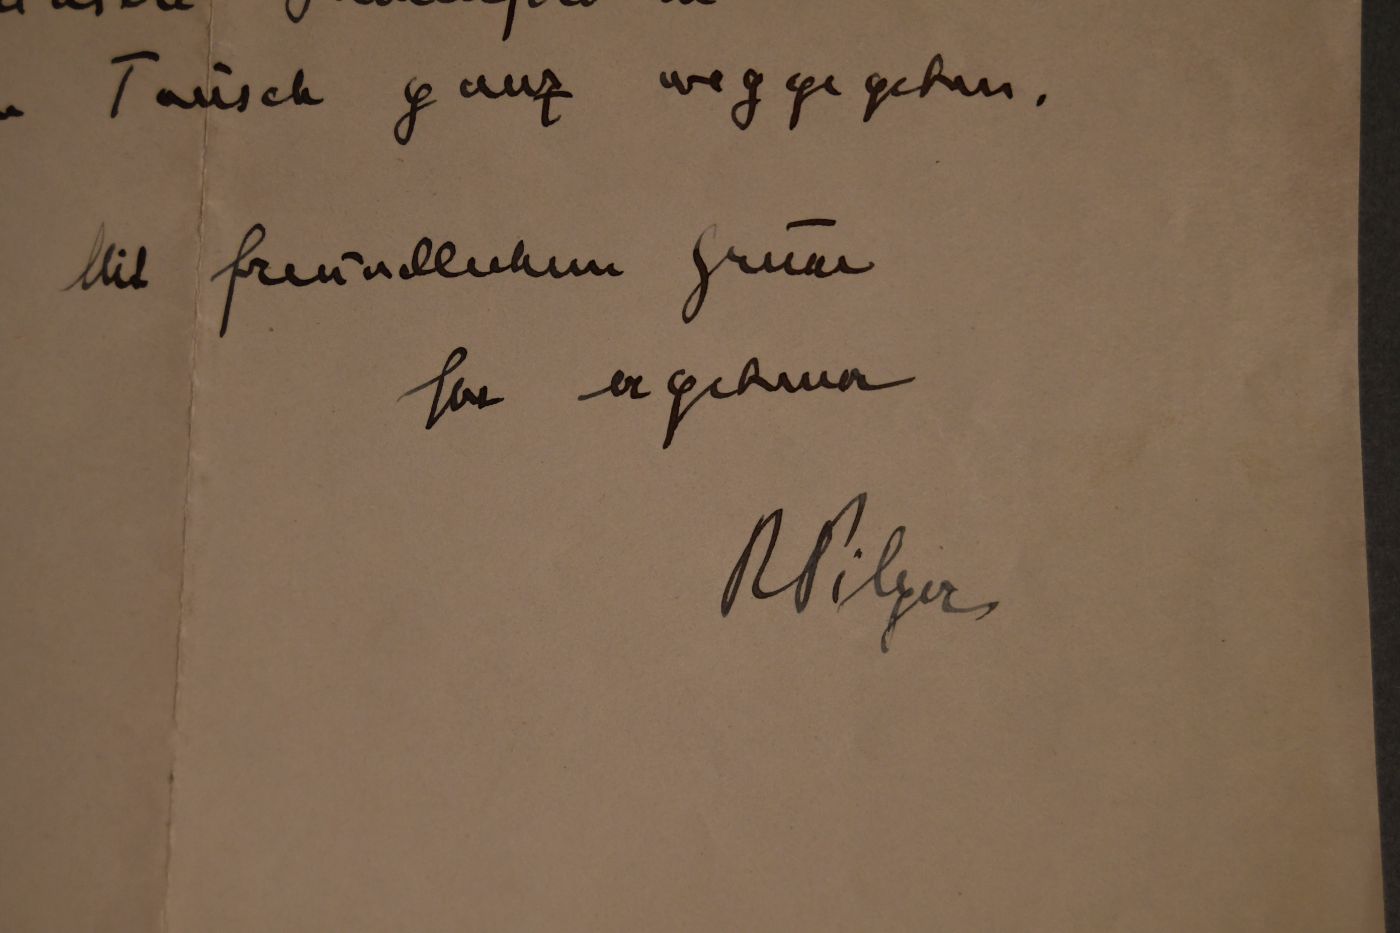 Tausch ganz weggegeben.
Mit freundlichem Grusse
Ihr ergebener
R Pilger